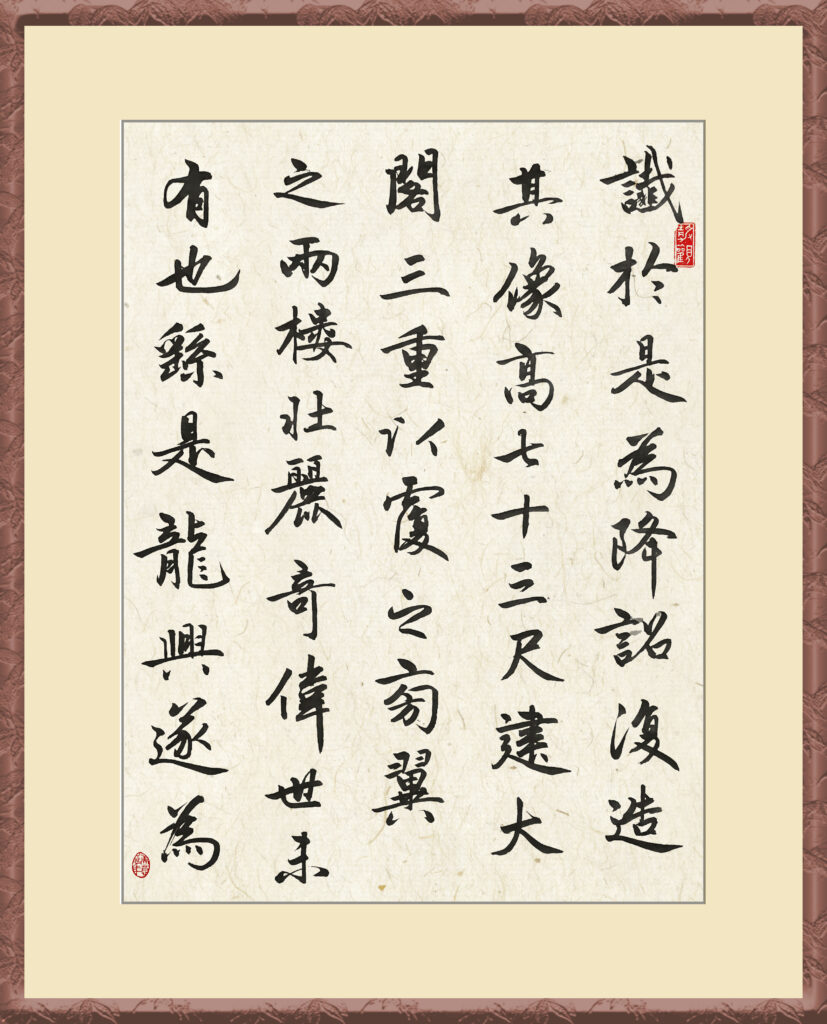 讖於是為降詔復造
其像高七十三尺建大
閣三重以覆之旁翼
之兩樓壯麗奇偉世未
有也繇是龍興遂為